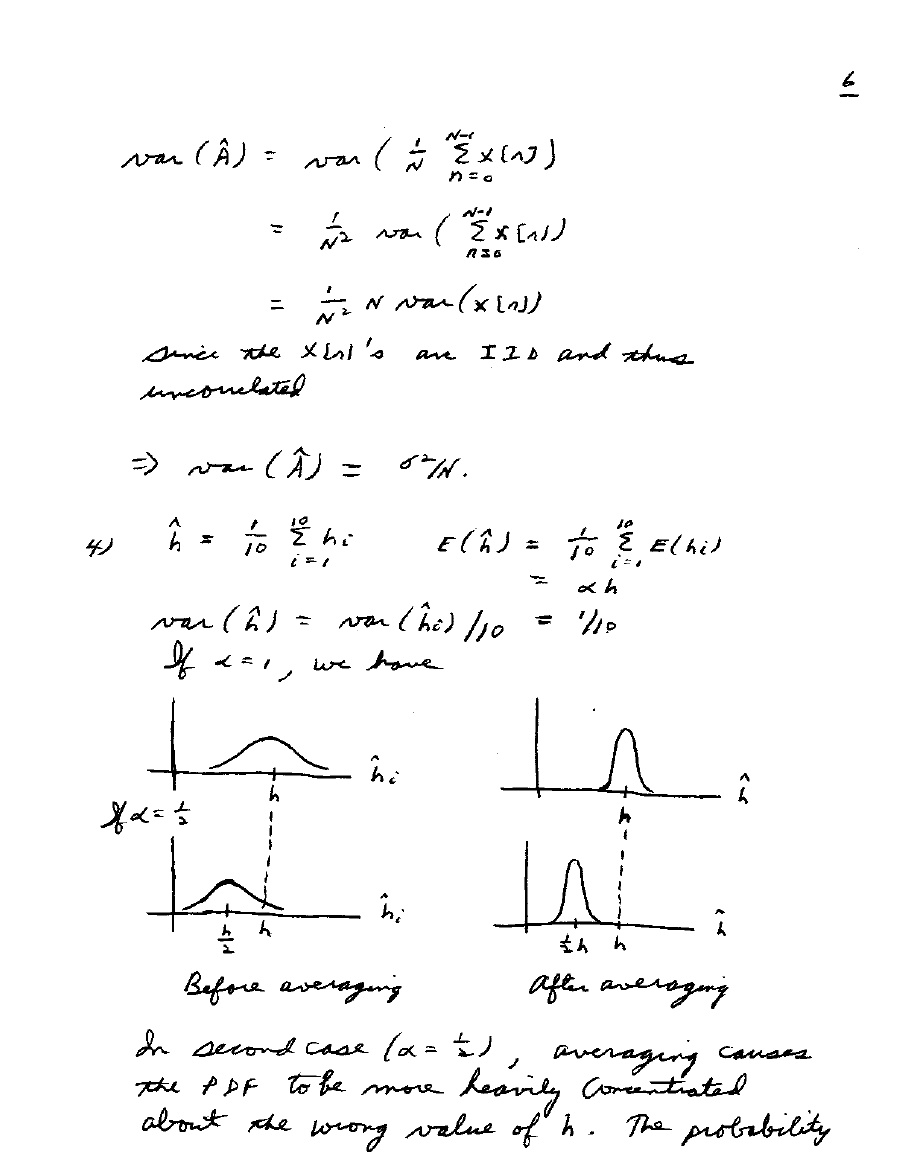 6
var(Â) = var( 1/N Σ_{n=0}^{N-1} x[n] )
= 1/N² var( Σ_{n=0}^{N-1} x[n] )
= 1/N² N var(x[n])
since the x[n]'s are IID and thus
uncorrelated
⇒ var(Â) = σ²/N.
4) ĥ = 1/10 Σ_{i=1}^{10} hi E(ĥ) = 1/10 Σ_{i=1}^{10} E(hi)
= αh
var(ĥ) = var(ĥi)/10 = 1/10
If α=1, we have
ĥi
h
ĥ
h
If α = 1/2
ĥi
h/2 h
ĥ
1/2 h h
Before averaging After averaging
In second case (α = 1/2), averaging causes
the PDF to be more heavily concentrated
about the wrong value of h. The probability